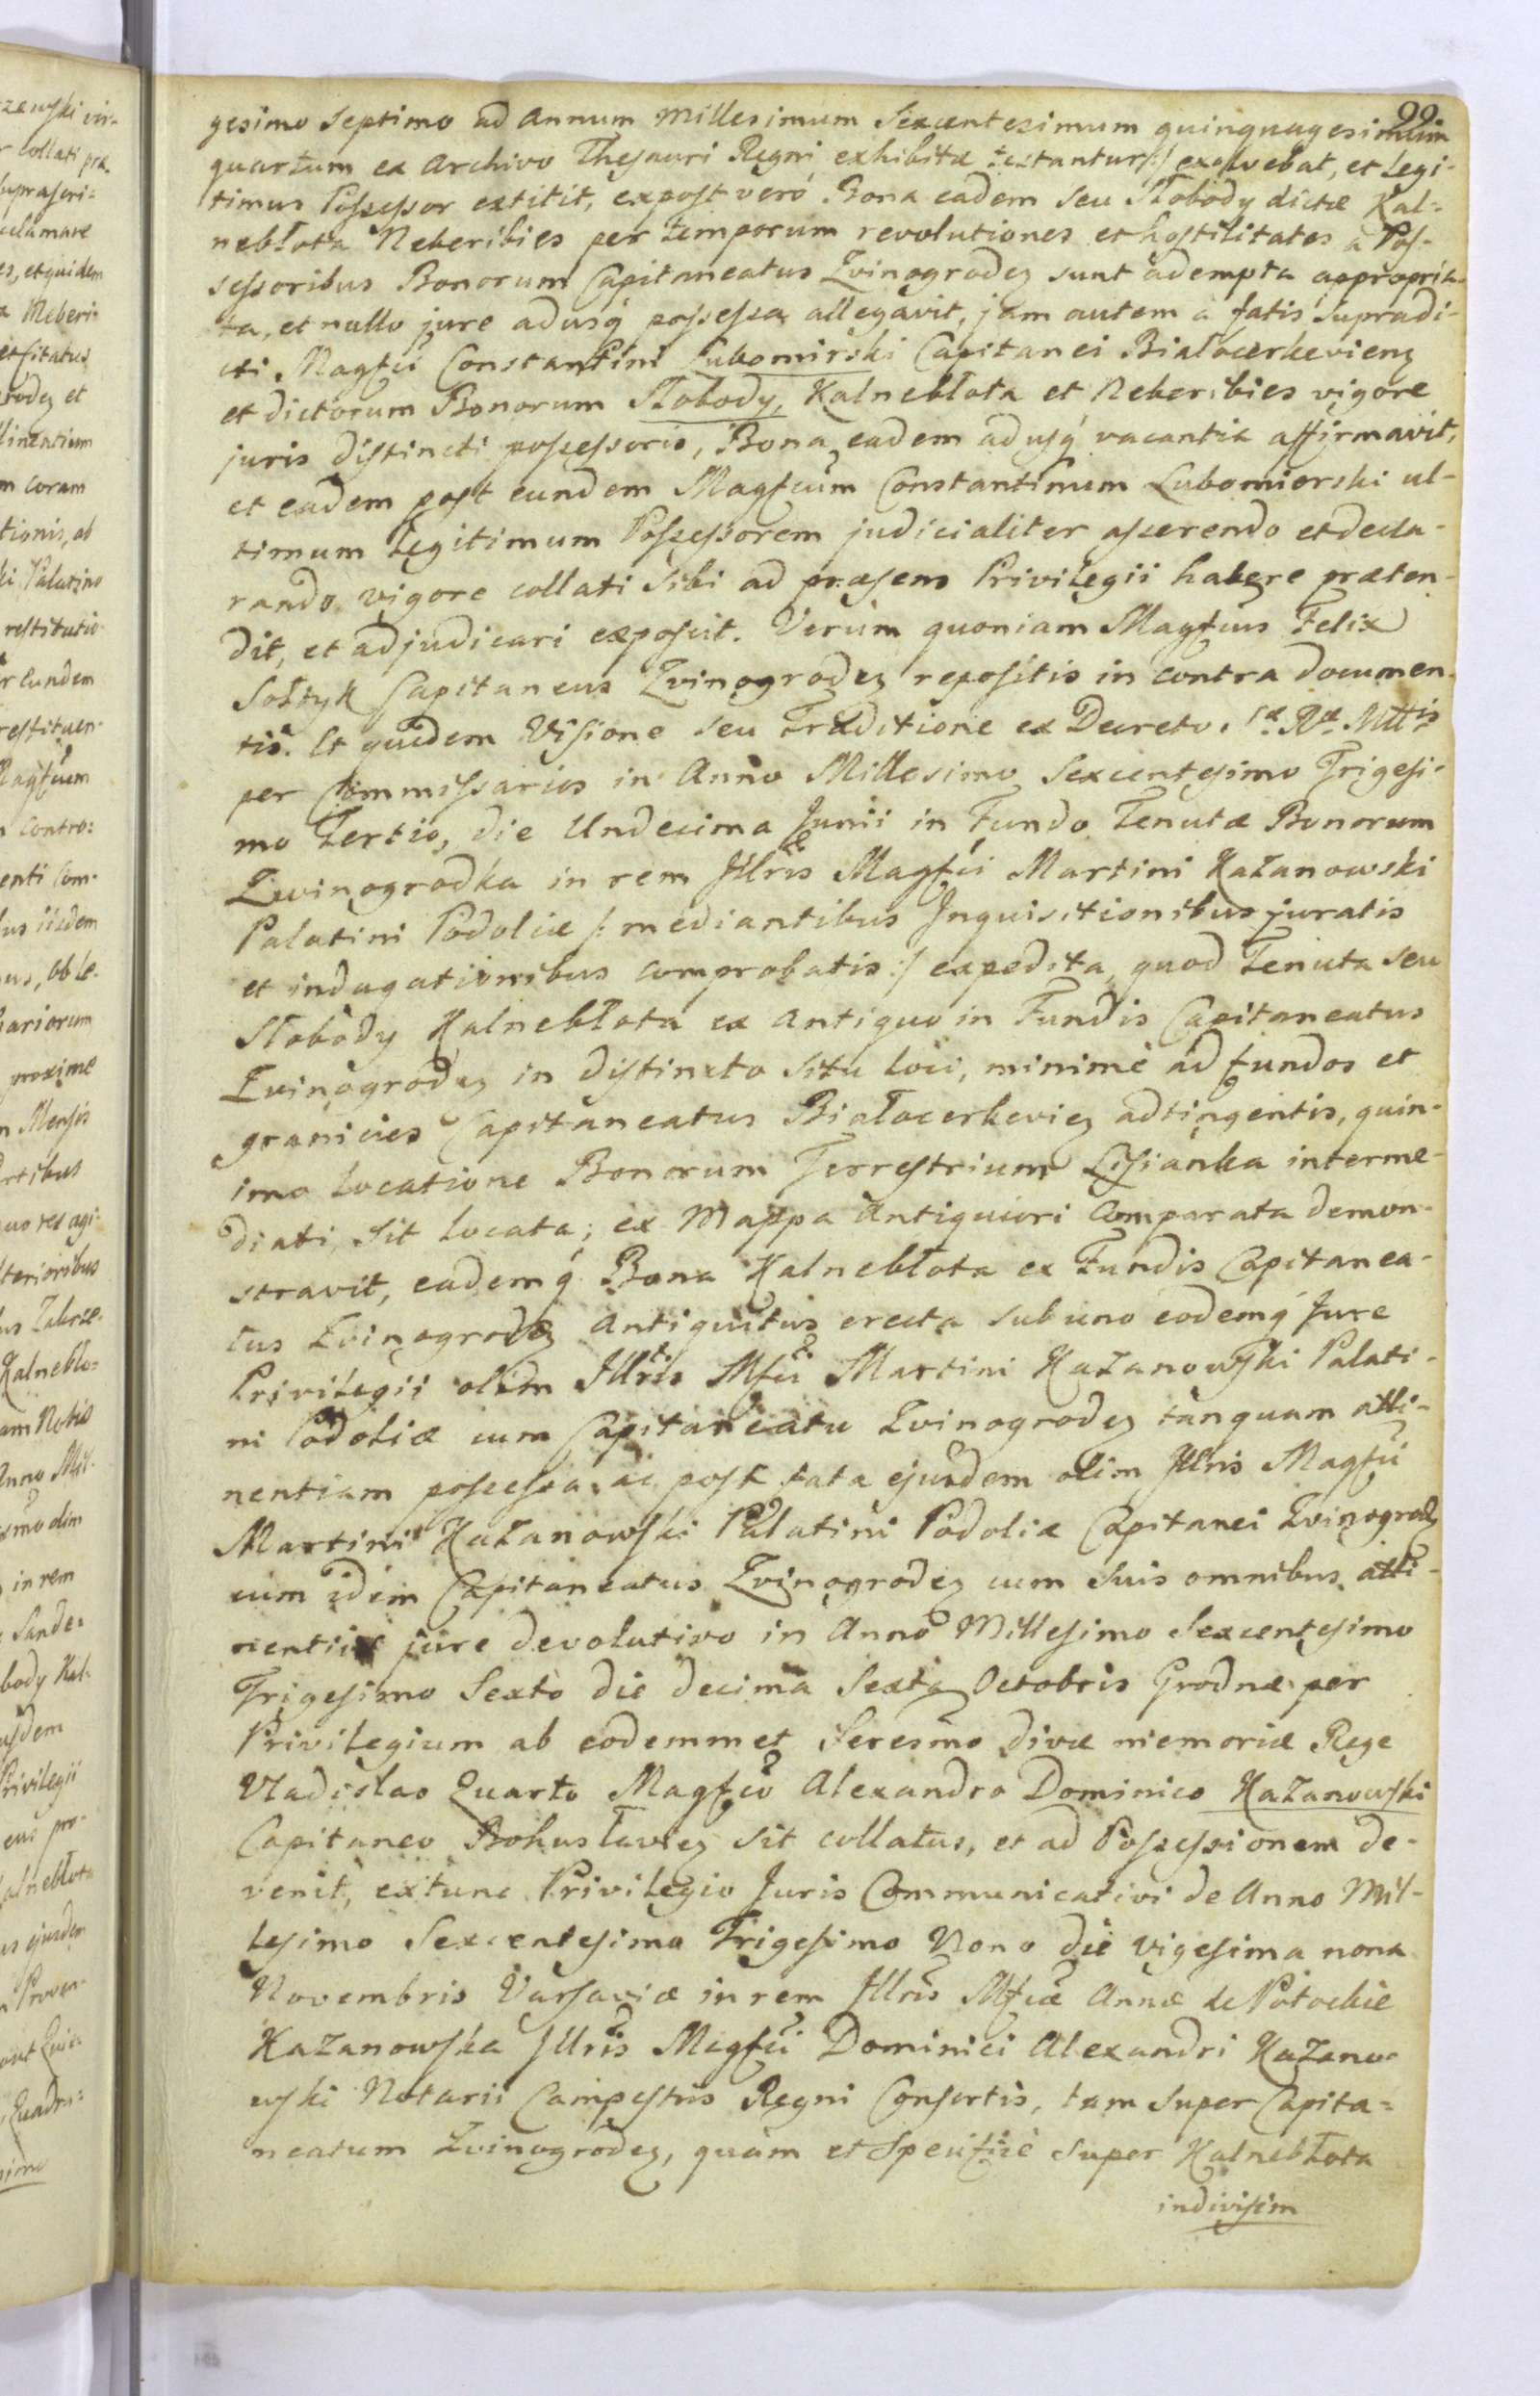 99
gesimo Septimo ad Annum Millesimum Sexcentesimum quinquagesimum
quartum ex Archivo Thesauri Regni exhibitæ testantur:/ exolvebat, et Legi-
timus Possessor extitit, expost verò Bona eadem seu Słobody dictæ Kal-
nebłota Neberibies per temporum revolutiones et hostilitates à Pos-
sessoribus Bonorum Capitaneatus Zvinogrodez sunt adempta appropria-
ta, et nullo jure adusq possessa allegavit, jam autem à fatis supradi-
cti Magfci Constantini Lubomirski Capitanei Białocerkevienz
et dictorum Bonorum Słobody, Kalnebłota et Neberibies vigore
juris distincti possessoris, Bona eadem adusq vacantia affirmavit,
et eadem post eundem Magfcum Constantinum Lubomierski ul-
timum Legitimum Possessorem judicialiter asserendo et decla-
rando vigore collati sibi ad præsens Privilegii habere præten-
dit, et adjudicari exposcit. Verùm quoniam Magfcus Felix
Sołtyk Capitaneus Zvinogrodez repositis in contra documen-
tis. Et quidem Visione seu Traditione ex Decreto Sæ Ræ Mttis
per Commissarios in Anno Millesimo Sexcentesimo Trigesi-
mo Tertio, die Undecima Junii in Fundo Tenutæ Bonorum
Zwinogrodka in rem Jllris Magfci Martini Kazanowski
Palatini Podoliæ /: mediantibus Jnquisitionibus juratis
et indagationibus comprobatis :/ expedita, quod Tenuta seu
Słobody Kalnebłota ex antiquo in Fundis Capitaneatus
Zvinogrodez in distincto situ loci, minimè ad fundos et
granicies Capitaneatus Białocerkeviez adtingentis, quin-
imo locatione Bonorum Terrestrium Lisianka interme-
diati, sit locata; ex Mappa Antiquiori Comparata demon-
stravit, eademq Bona Kalnebłota ex Fundis Capitanea-
tus Zvinogrodez antiquitus erecta sub uno eodemq Jure
Privilegii olim Jllris Mfci Martini Kazanowski Palati-
ni Podoliæ cum Capitaneatu Zvinogrodez tanquam atti-
nentiam possessa, ac post fata ejusdem olim Jllris Magfci
Martini Kazanowski Palatini Podoliæ Capitanei Zvinogrodz
cum idem Capitaneatus Zvinogrodez cum suis omnibus atti-
nentiis jure devolutivo in Anno Millesimo Sexcentesimo
Trigesimo Sexto die decima Sexta Octobris Grodnæ per
Privilegium ab eodemmet Seresmo divæ memoriæ Rege
Vladislao Quarto Magfco Alexandro Dominico Kazanowski
Capitaneo Bohusłaviez sit collatus, et ad Possessionem de-
venit, extunc Privilegio Juris Communicativi de Anno Mil-
lesimo Sexcentesimo Trigesimo Nono die vigesima nona
Novembris Varsaviæ in rem Jllris Mfcæ Annæ de Potockie
Kazanowska Jllris Magfci Dominici Alexandri Kazano-
wski Notarii Campestris Regni Consortis, tam super Capita-
neatum Zvinogrodez, quàm et Specificè super Kalnebłota
indivisim